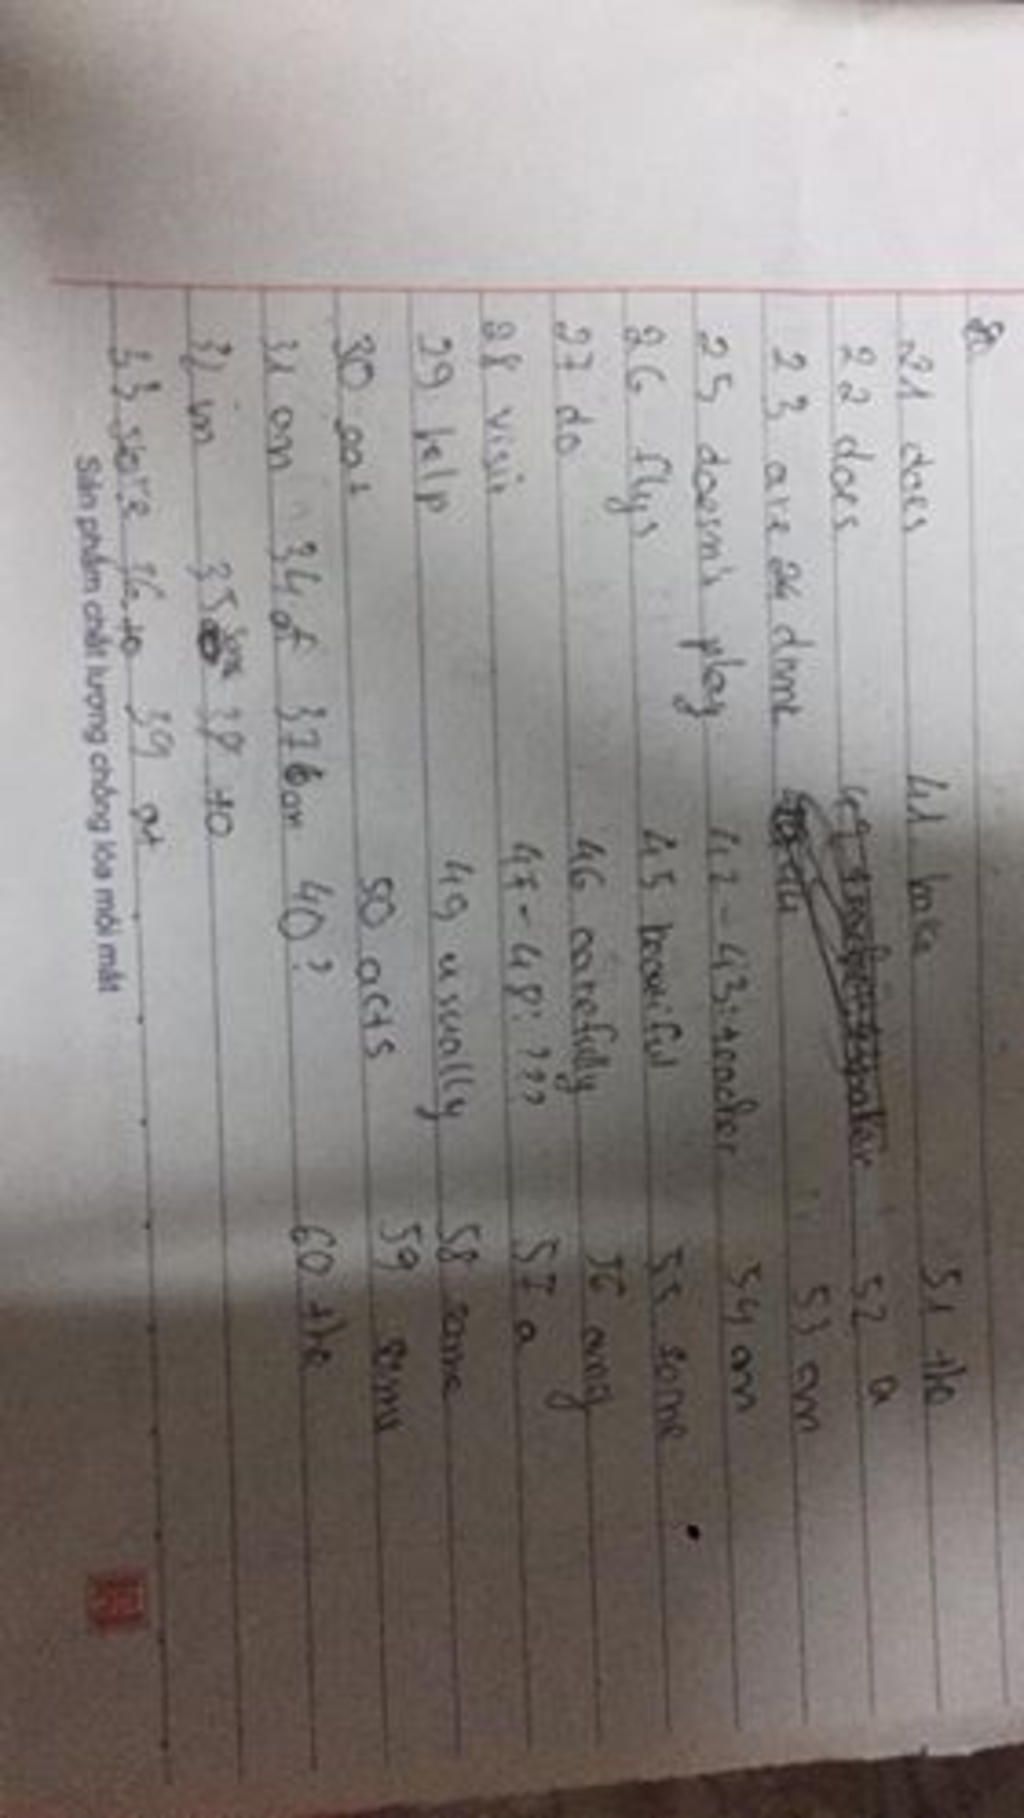 80
21 does 41 51 the
22 does 52 a
23 are 24 53 an
25 doesn's play 42 - 43: teacher 54 an
26 flys 45 55 some
27 do 46 carefully 56 any
28 visit 47 - 48: ??? 57 a
29 help 49 usually 58 some
30 50 acts 59
31 on 34 of 37 40 ? 60 the
32 in 35 38 to
33 36 to 39 at
Sản phẩm chất lượng chống lóa mỏi mắt